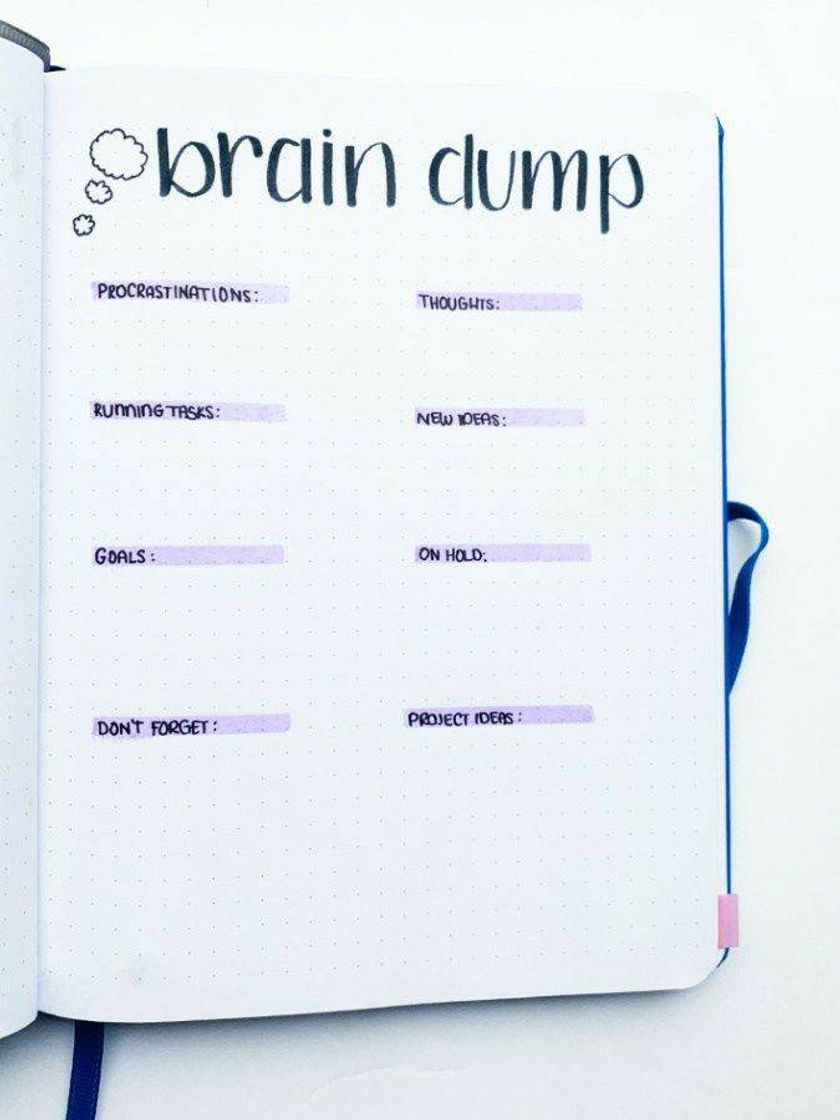 brain dump
PROCRASTINATIONS:
THOUGHTS:
RUNNING TASKS:
NEW IDEAS:
GOALS:
ON HOLD:
DON'T FORGET:
PROJECT IDEAS: